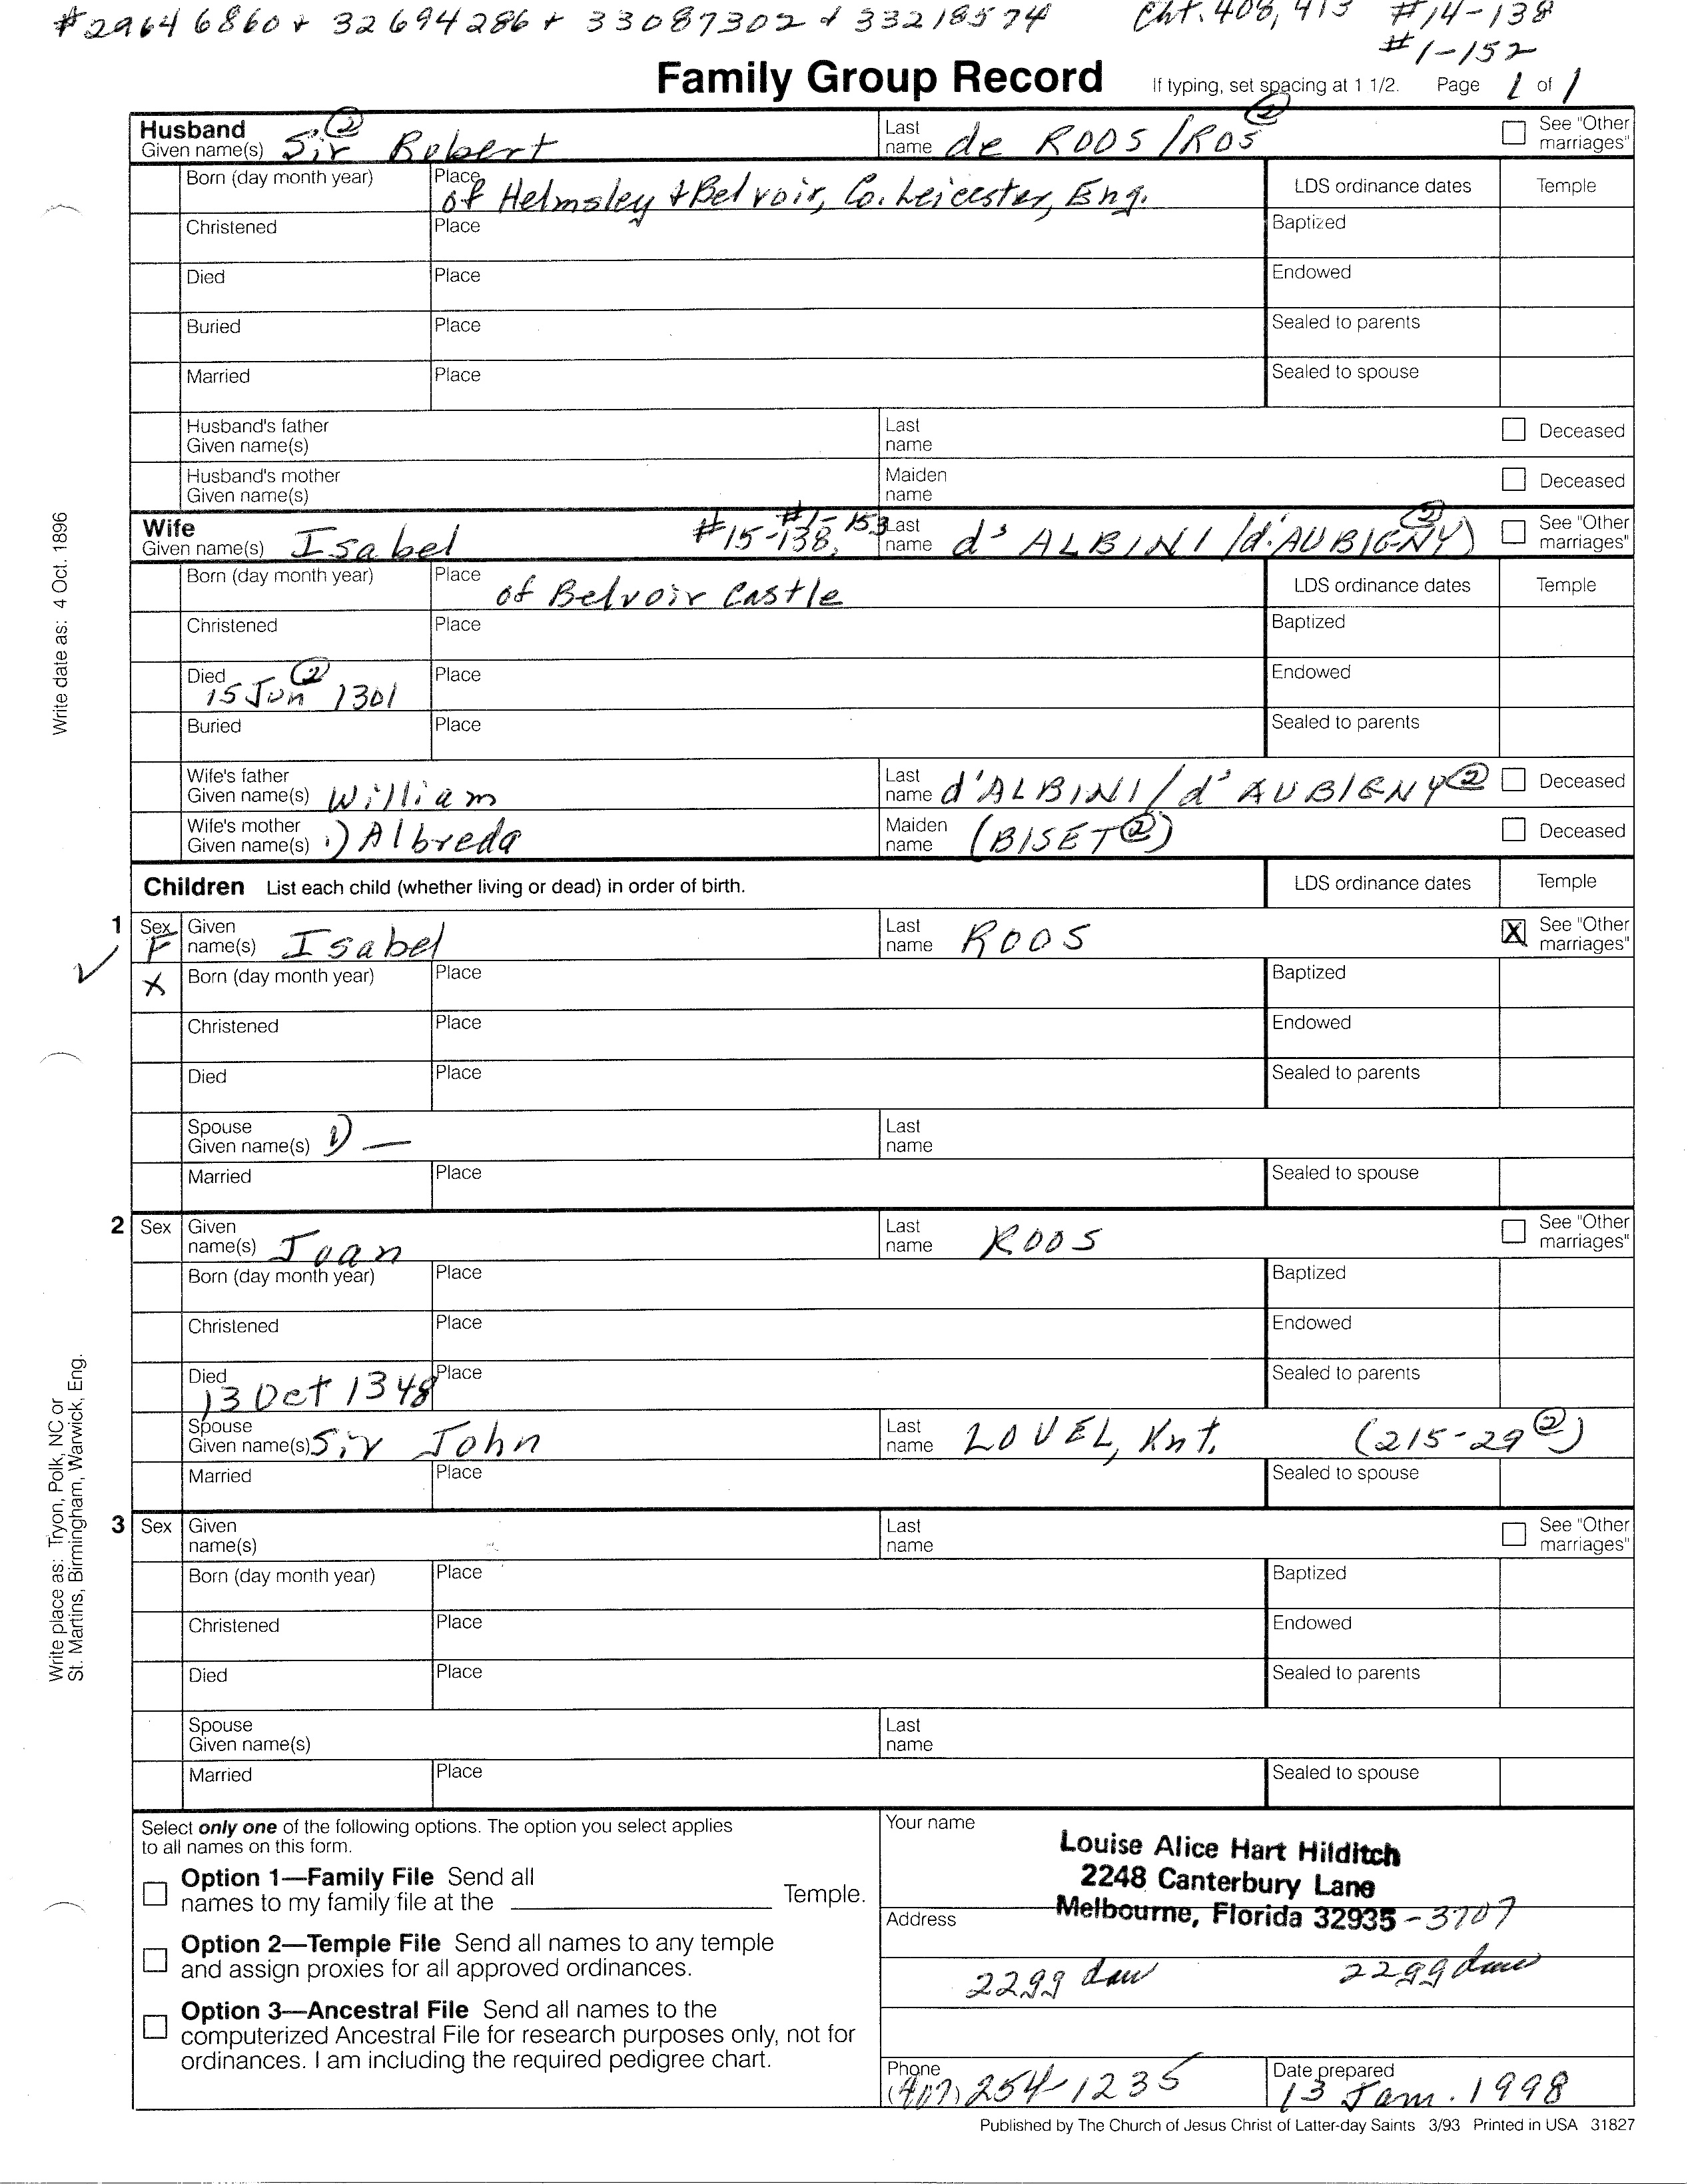 #29646860 + 32694286 + 33087302 + 33218574 Cht. 408, 413 #14-138
#1-152
Family Group Record If typing, set spacing at 1 1/2. Page 1 of 1
Husband
Given name(s) Sir ② Robert Last name de ROOS/ROS ② See "Other marriages"
Born (day month year) Place of Helmsley & Belvoir, Co. Leicester, Eng. LDS ordinance dates Temple
Christened Place Baptized
Died Place Endowed
Buried Place Sealed to parents
Married Place Sealed to spouse
Husband's father
Given name(s) Last name Deceased
Husband's mother
Given name(s) Maiden name Deceased
Wife
Given name(s) Isabel #15-138, #1-153 Last name d'ALBINI/d'AUBIGNY) ② See "Other marriages"
Born (day month year) Place of Belvoir Castle LDS ordinance dates Temple
Christened Place Baptized
Died 15 Jun ② 1301 Place Endowed
Buried Place Sealed to parents
Wife's father
Given name(s) William Last name d'ALBINI/d'AUBIGNY ② Deceased
Wife's mother
Given name(s) 1) Albreda Maiden name (BISET ②) Deceased
Children List each child (whether living or dead) in order of birth. LDS ordinance dates Temple
1 Sex F Given name(s) Isabel Last name ROOS X See "Other marriages"
X Born (day month year) Place Baptized
Christened Place Endowed
Died Place Sealed to parents
Spouse
Given name(s) 1) — Last name
Married Place Sealed to spouse
2 Sex Given name(s) Joan Last name ROOS See "Other marriages"
Born (day month year) Place Baptized
Christened Place Endowed
Died 13 Oct 1348 Place Sealed to parents
Spouse
Given name(s) Sir John Last name LOVEL, Knt. (215-29 ②)
Married Place Sealed to spouse
3 Sex Given name(s) Last name See "Other marriages"
Born (day month year) Place Baptized
Christened Place Endowed
Died Place Sealed to parents
Spouse
Given name(s) Last name
Married Place Sealed to spouse
Select only one of the following options. The option you select applies
to all names on this form.
Option 1—Family File Send all
names to my family file at the Temple.
Option 2—Temple File Send all names to any temple
and assign proxies for all approved ordinances.
Option 3—Ancestral File Send all names to the
computerized Ancestral File for research purposes only, not for
ordinances. I am including the required pedigree chart.
Your name
Louise Alice Hart Hilditch
2248 Canterbury Lane
Address Melbourne, Florida 32935-3707
2299 2299
Phone (407) 254-1235 Date prepared 13 Jan. 1998
Published by The Church of Jesus Christ of Latter-day Saints 3/93 Printed in USA 31827
Write date as: 4 Oct. 1896
Write place as: Tryon, Polk, NC or
St. Martins, Birmingham, Warwick, Eng.